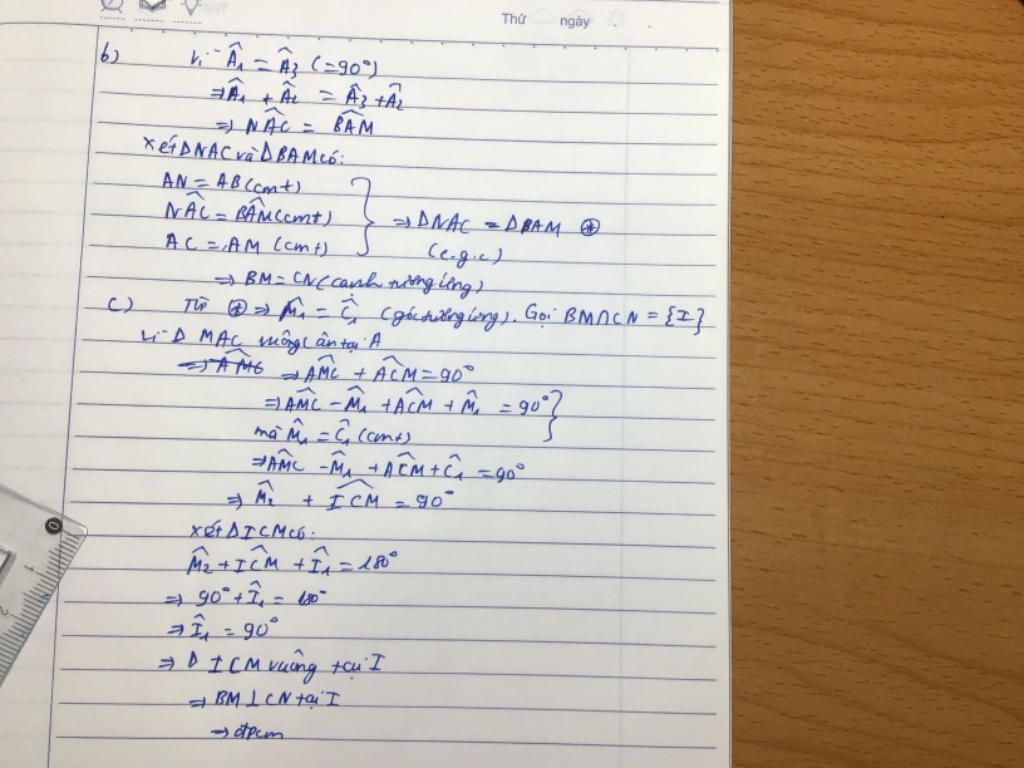 Thứ ngày
b) Vì Â₁ = Â₃ (=90°)
⇒ Â₁ + Â₂ = Â₃ + Â₂
⇒ N̂AC = B̂AM
Xét ΔNAC và ΔBAM có:
AN = AB (cmt)
N̂AC = B̂AM (cmt) } ⇒ ΔNAC = ΔBAM ⊕
AC = AM (cmt) (c.g.c)
⇒ BM = CN (cạnh tương ứng)
c) Từ ⊕ ⇒ M̂₁ = Ĉ₁ (góc tương ứng). Gọi BM∩CN = {I}
Vì Δ MAC vuông cân tại A
⇒ ÂMC + ÂCM = 90°
⇒ ÂMC - M̂₁ + ÂCM + M̂₁ = 90° }
mà M̂₁ = Ĉ₁ (cmt)
⇒ ÂMC - M̂₁ + ÂCM + Ĉ₁ = 90°
⇒ M̂₂ + ÎCM = 90°
Xét ΔICM có:
M̂₂ + ÎCM + Î₁ = 180°
⇒ 90° + Î₁ = 180°
⇒ Î₁ = 90°
⇒ Δ ICM vuông tại I
⇒ BM ⊥ CN tại I
→ đpcm
0
1
2